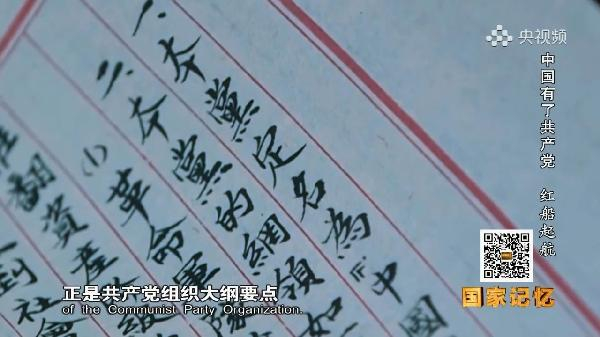 央视频
中国有了共产党 红船起航
一、本黨定名為『中國
二、本黨的綱領如
(1)革命軍
翻資產 級
到社會
正是共产党组织大纲要点
of the Communist Party Organization.
国家记忆